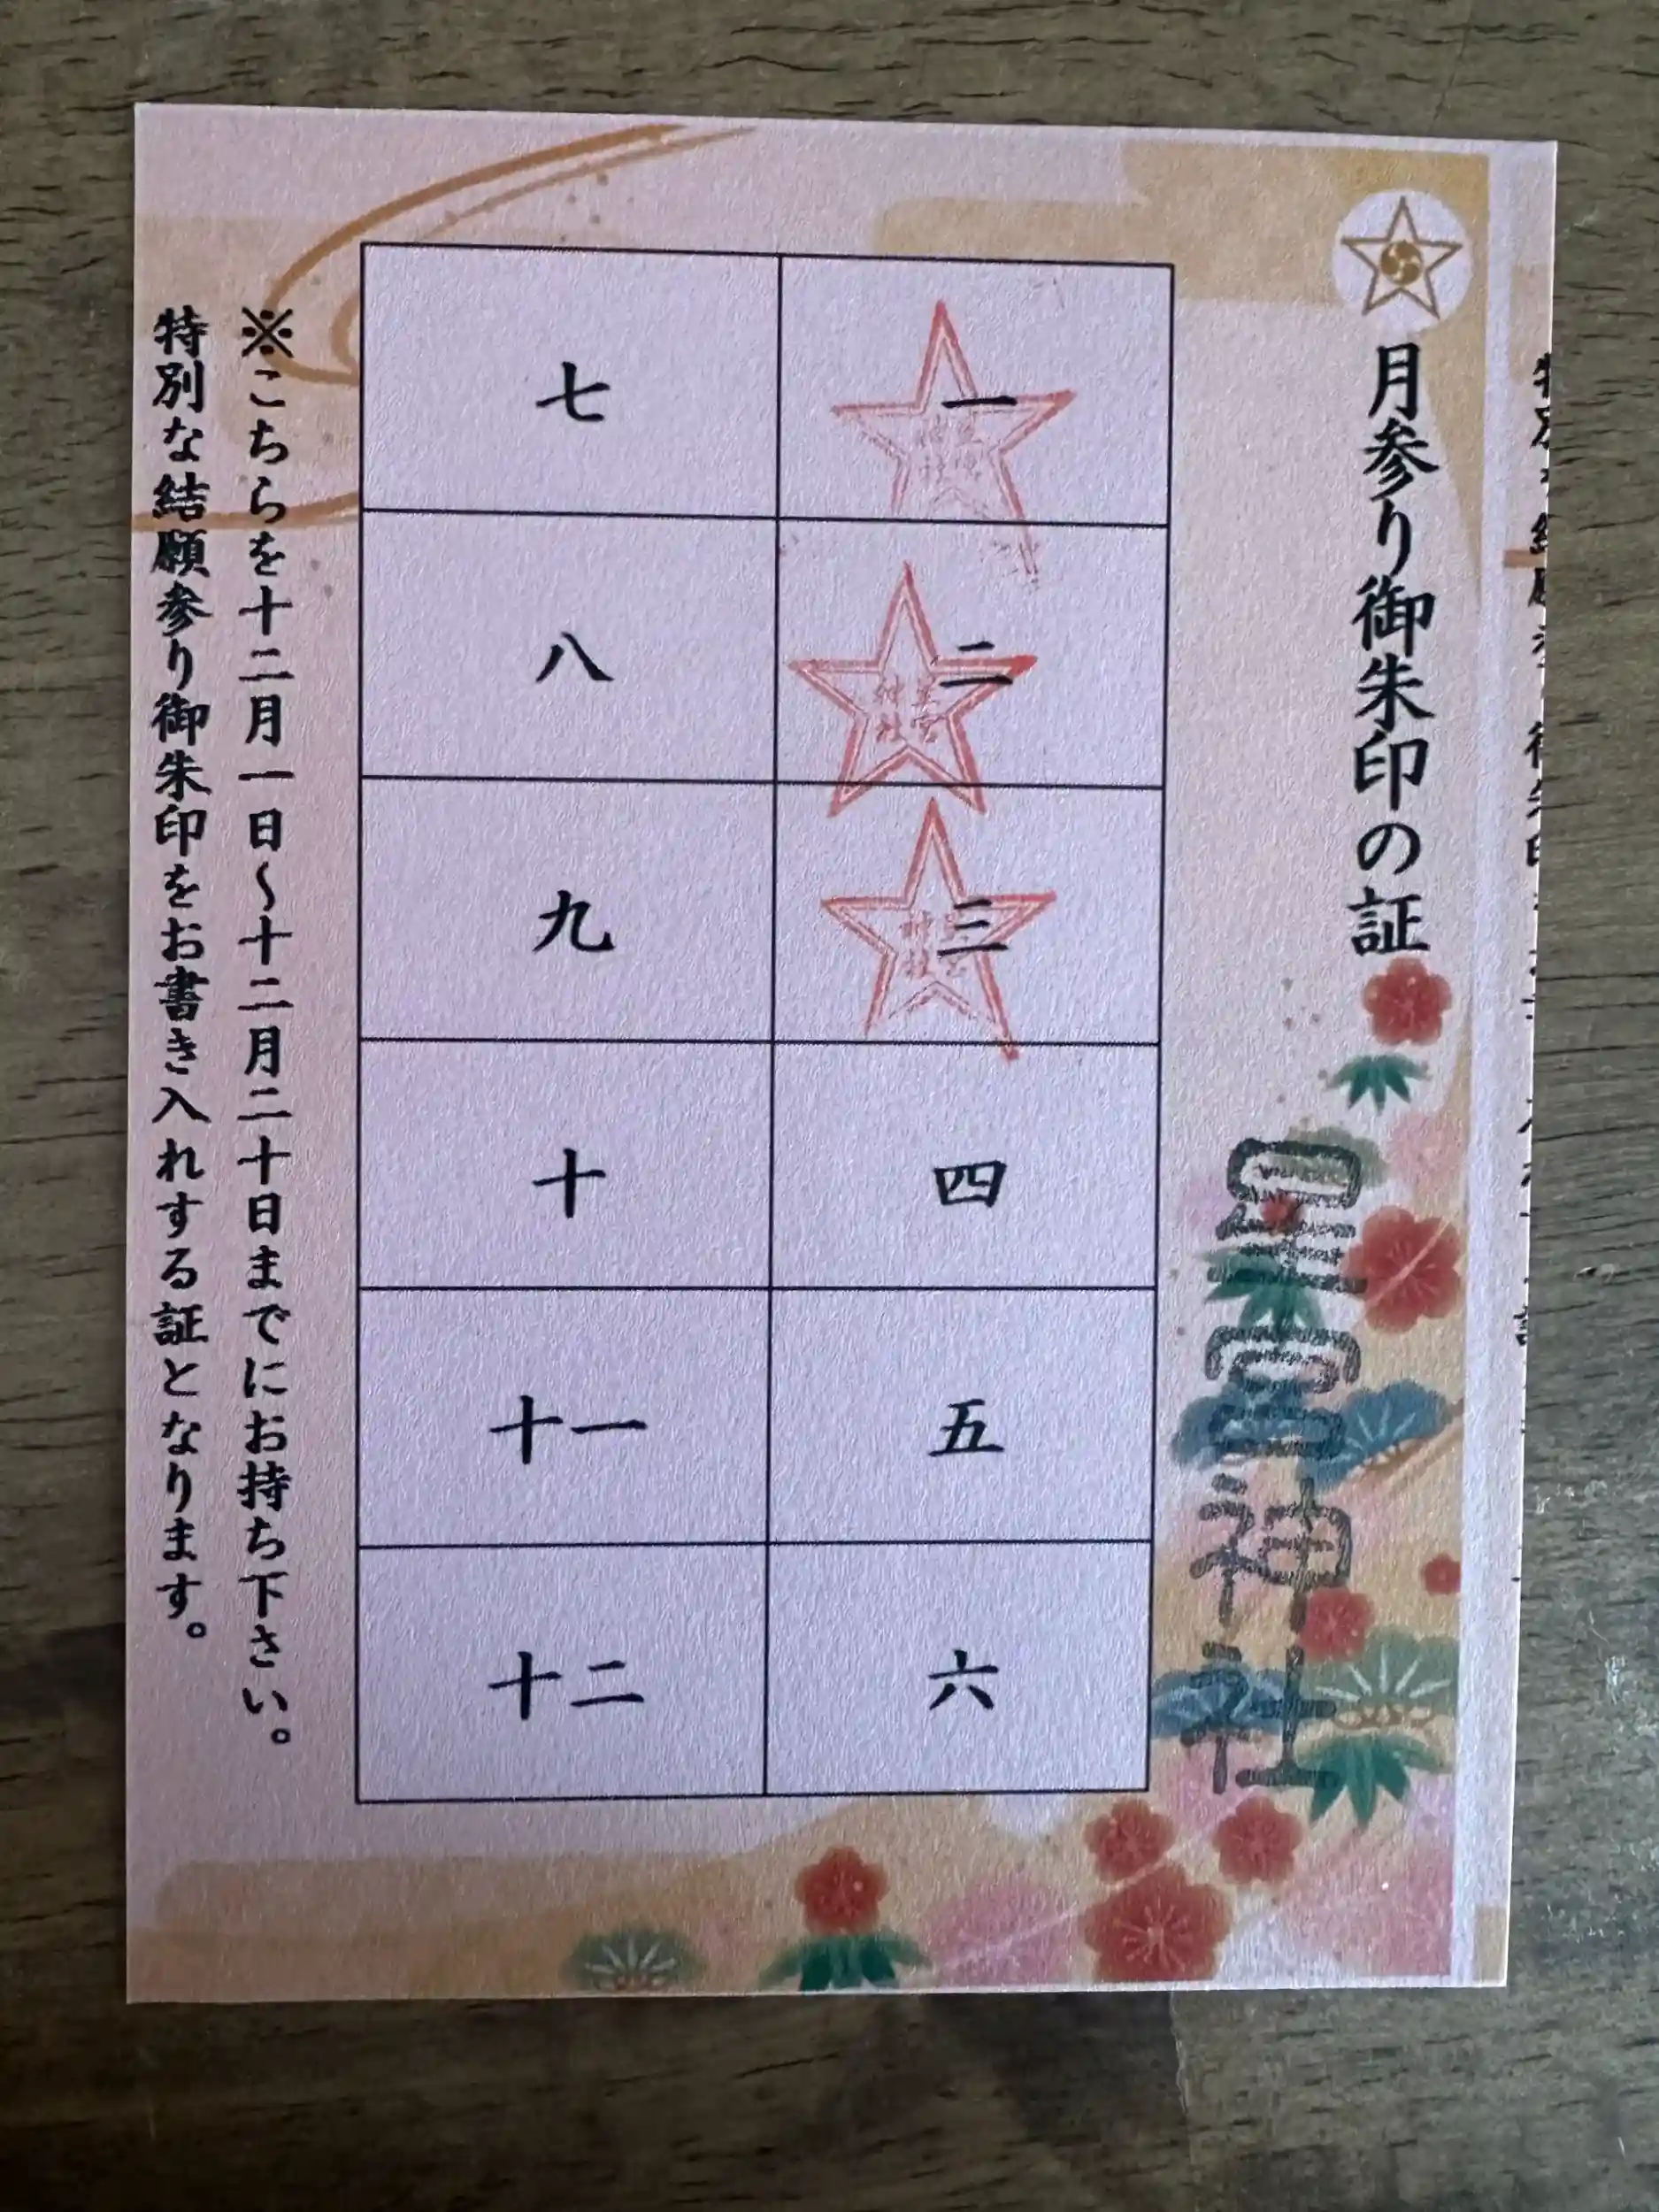 月参り御朱印の証
星宮神社
一
二
三
四
五
六
七
八
九
十
十一
十二
※こちらを十二月一日～十二月二十日までにお持ち下さい。
特別な結願参り御朱印をお書き入れする証となります。
星宮神社
星宮神社
星宮神社